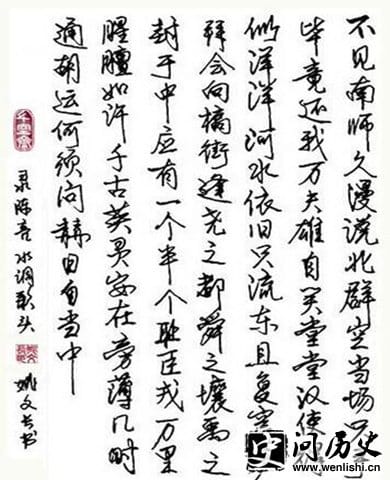 不见南师久漫说北群空当场只手
毕竟还我万夫雄自笑堂堂汉使得
似洋洋河水依旧只流东且复穹
拜会向槁街逢尧之都舜之壤禹之
封于中应有一个半个耻臣戎万里
腥膻如许千古英灵安在旁薄几时
通胡运何须问赫日自当中
录陈亮水调歌头 姚文长书
问历史
www.wenlishi.cn